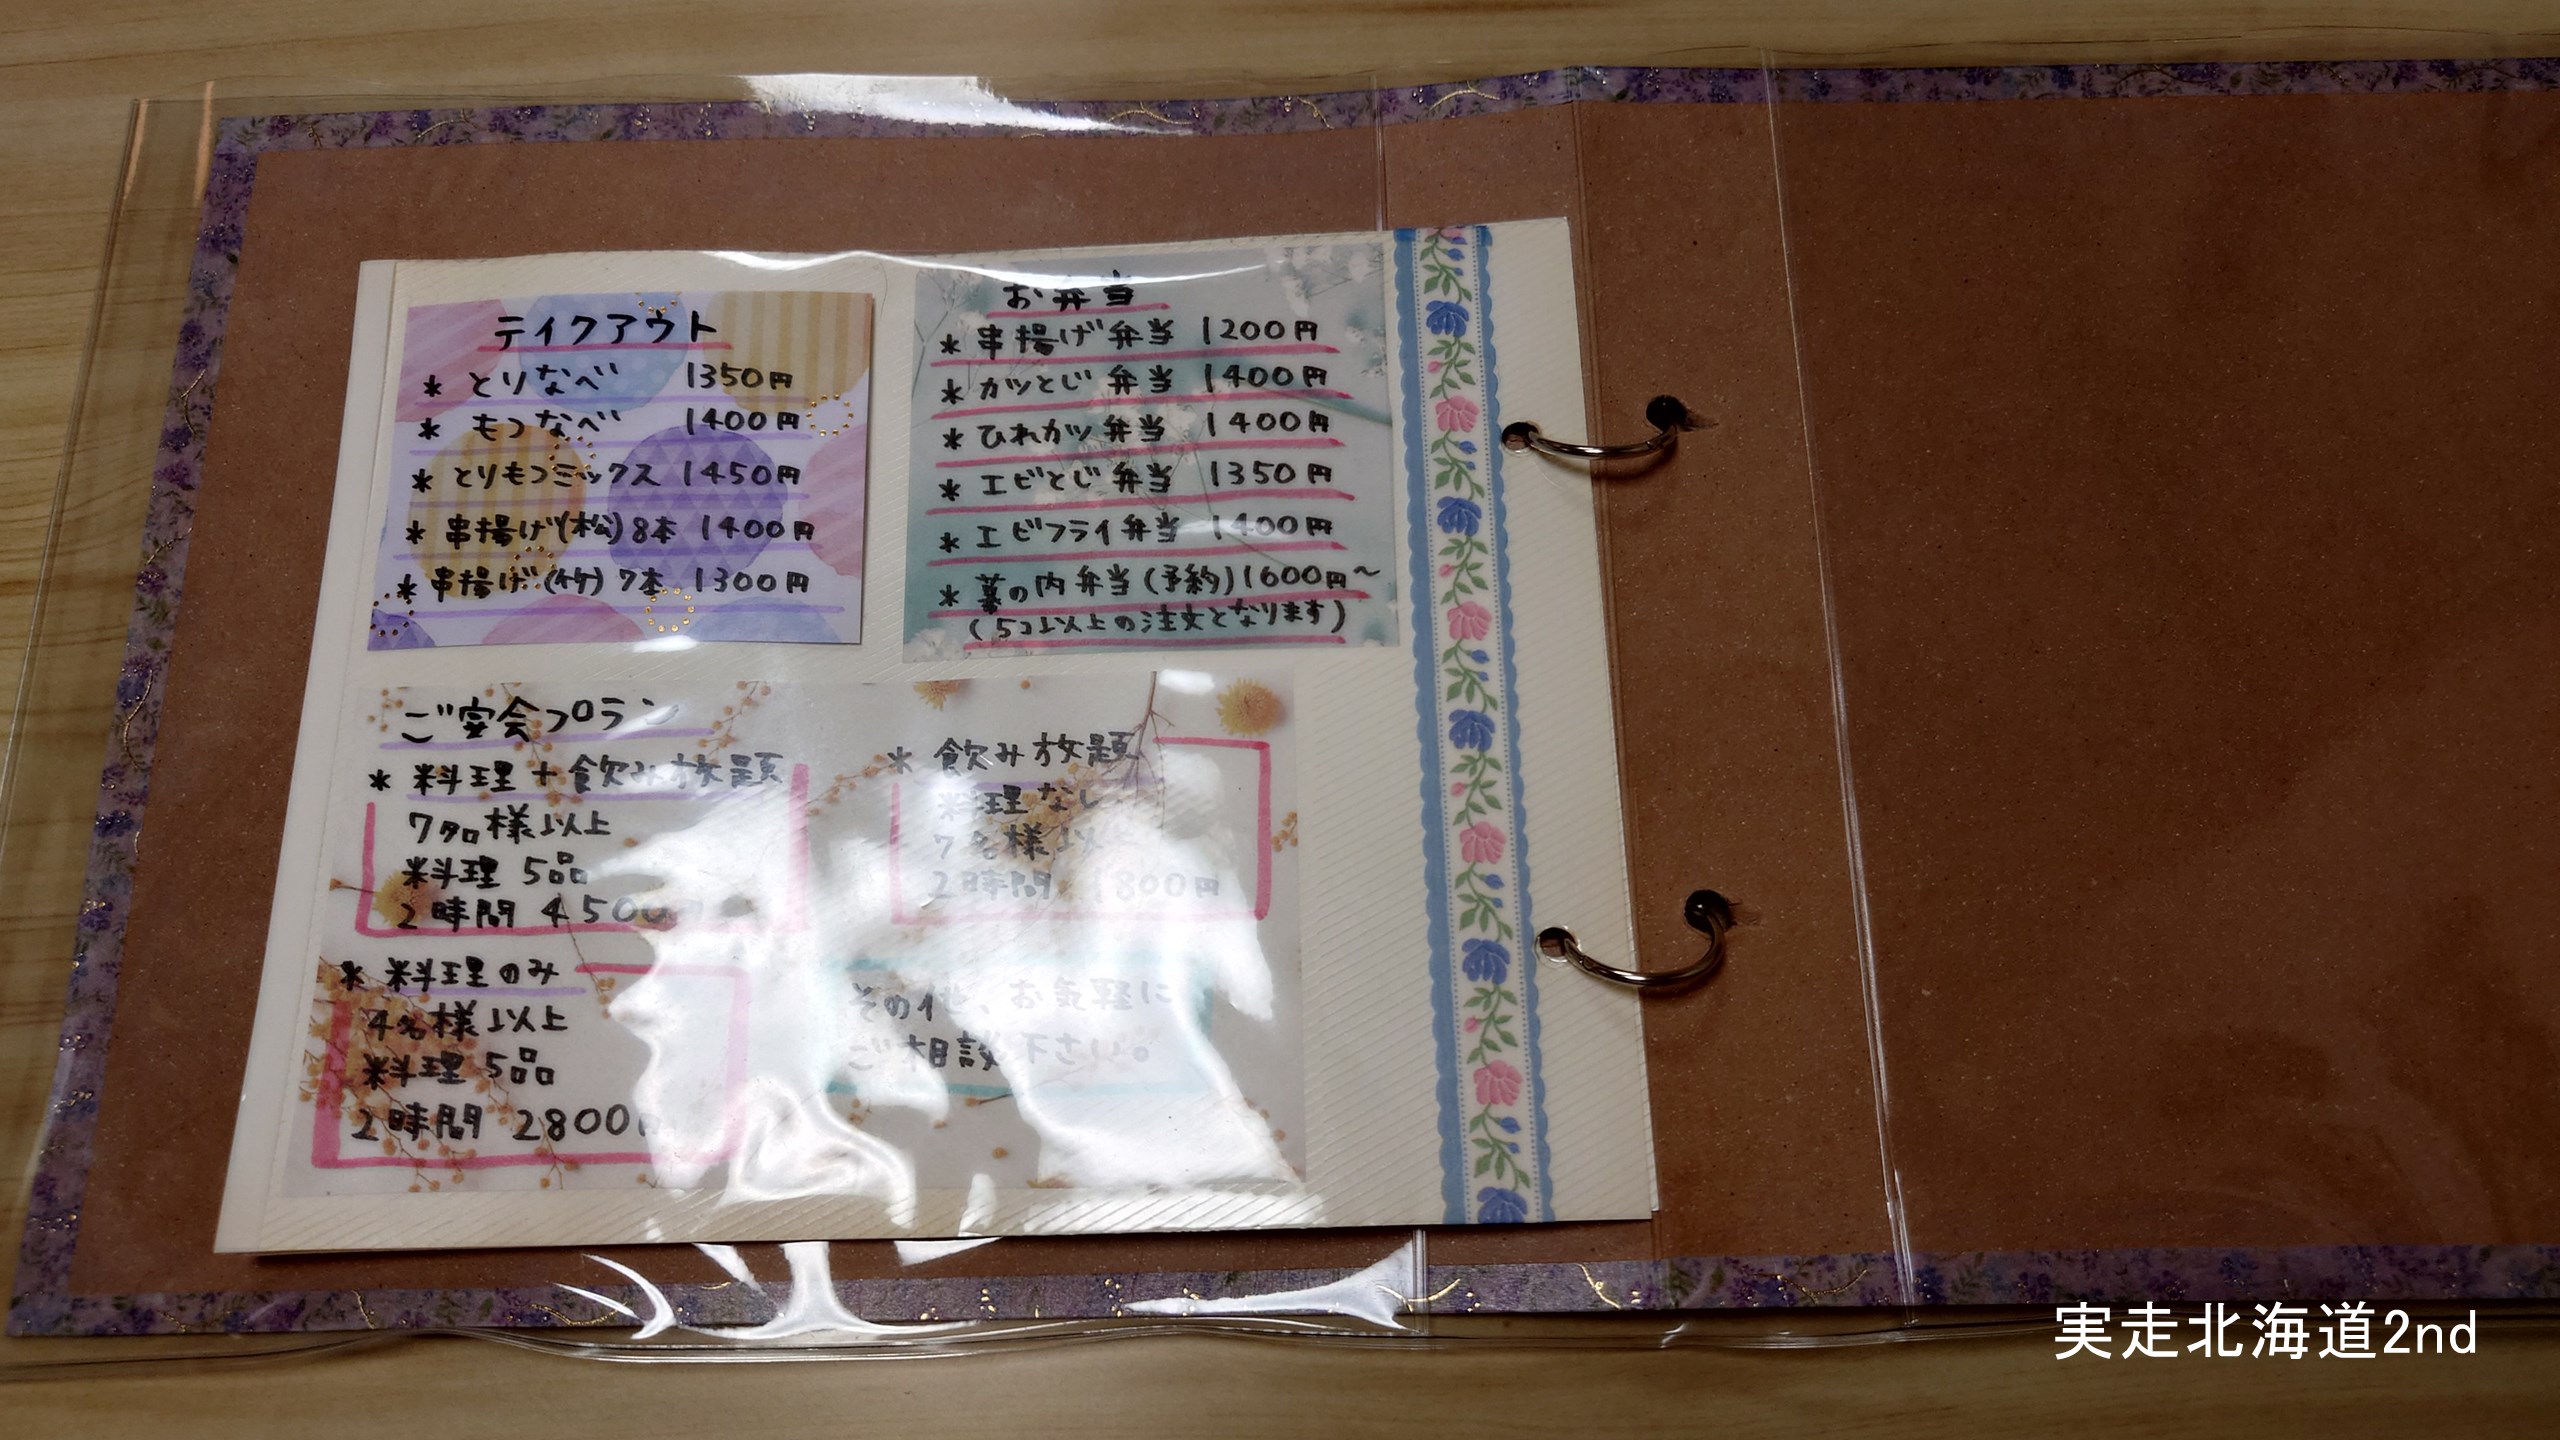 テイクアウト
* とりなべ 1350円
* もつなべ 1400円
* とりもつミックス 1450円
* 串揚げ(松)8本 1400円
* 串揚げ(竹)7本 1300円
お弁当
* 串揚げ弁当 1200円
* カツとじ弁当 1400円
* ひれカツ弁当 1400円
* エビとじ弁当 1350円
* エビフライ弁当 1400円
* 幕の内弁当(予約)1600円~
(5コ以上の注文となります)
ご宴会プラン
* 料理+飲み放題
7名様以上
料理 5品
2時間 4500円
* 料理のみ
4名様以上
料理 5品
2時間 2800円
* 飲み放題
料理なし
7名様以上
2時間 1800円
その他、お気軽に
ご相談下さい。
実走北海道2nd